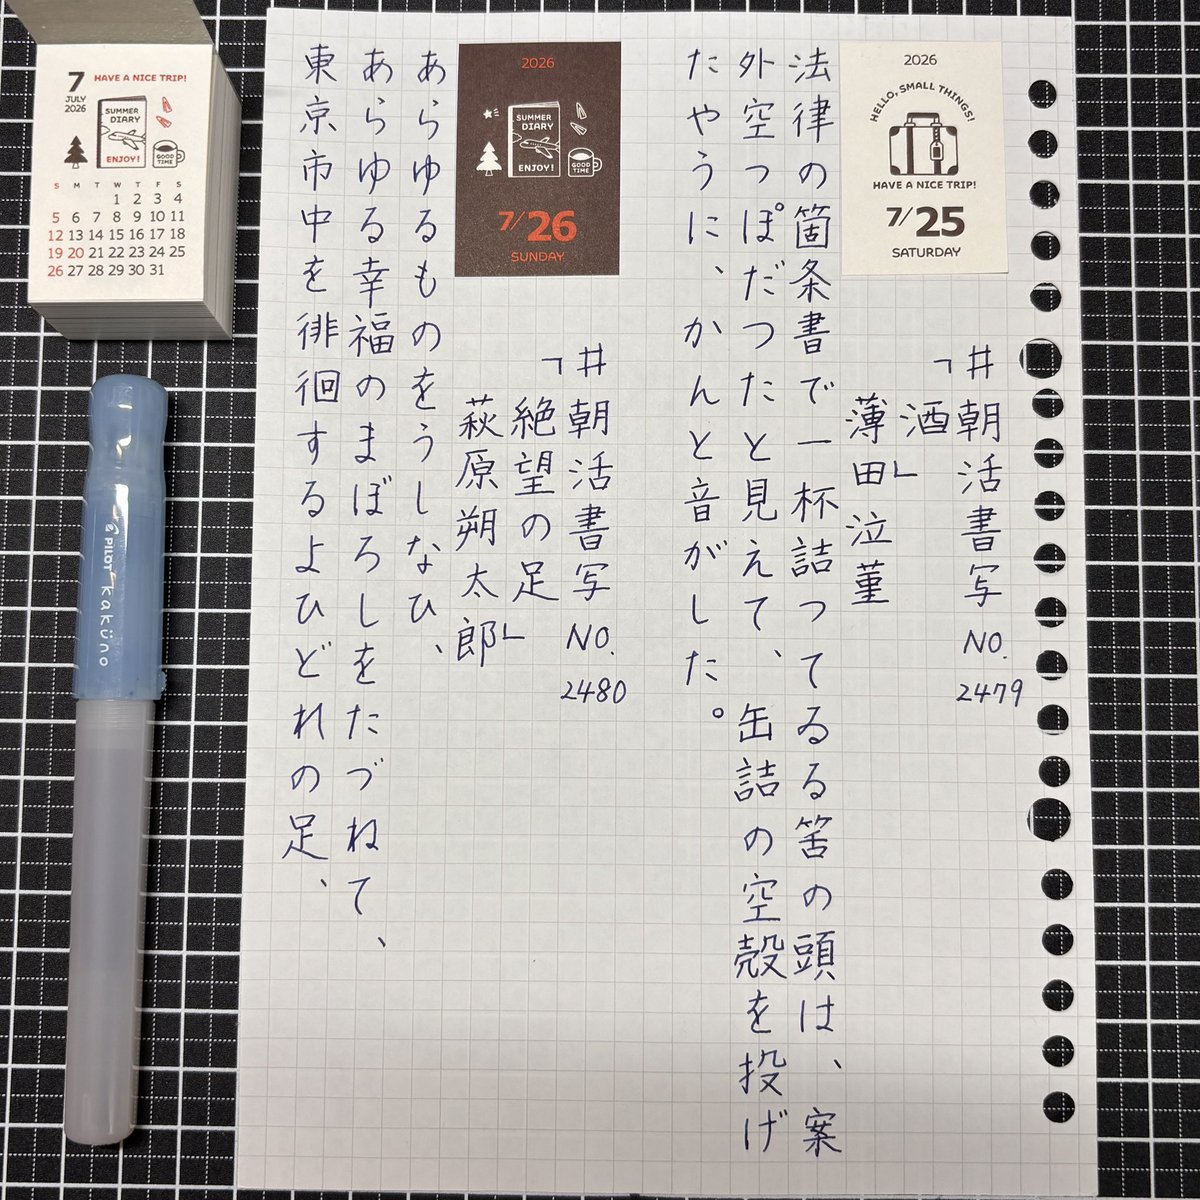 2026
HELLO, SMALL THINGS!
HAVE A NICE TRIP!
7/25
SATURDAY
#朝活書写 NO. 2479
「酒」
薄田泣菫
法律の箇条書で一杯詰つてゐる筈の頭は、案
外空つぽだつたと見えて、缶詰の空殻を投げ
たやうに、かんと音がした。
2026
SUMMER DIARY
ENJOY!
GOOD TIME
7/26
SUNDAY
#朝活書写 NO. 2480
「絶望の足」
萩原朔太郎
あらゆるものをうしなひ、
あらゆる幸福のまぼろしをたづねて、
東京市中を徘徊するよひどれの足、
7
JULY
2026
HAVE A NICE TRIP!
SUMMER DIARY
ENJOY!
GOOD TIME
S M T W T F S
1 2 3 4
5 6 7 8 9 10 11
12 13 14 15 16 17 18
19 20 21 22 23 24 25
26 27 28 29 30 31
PILOT kaküno